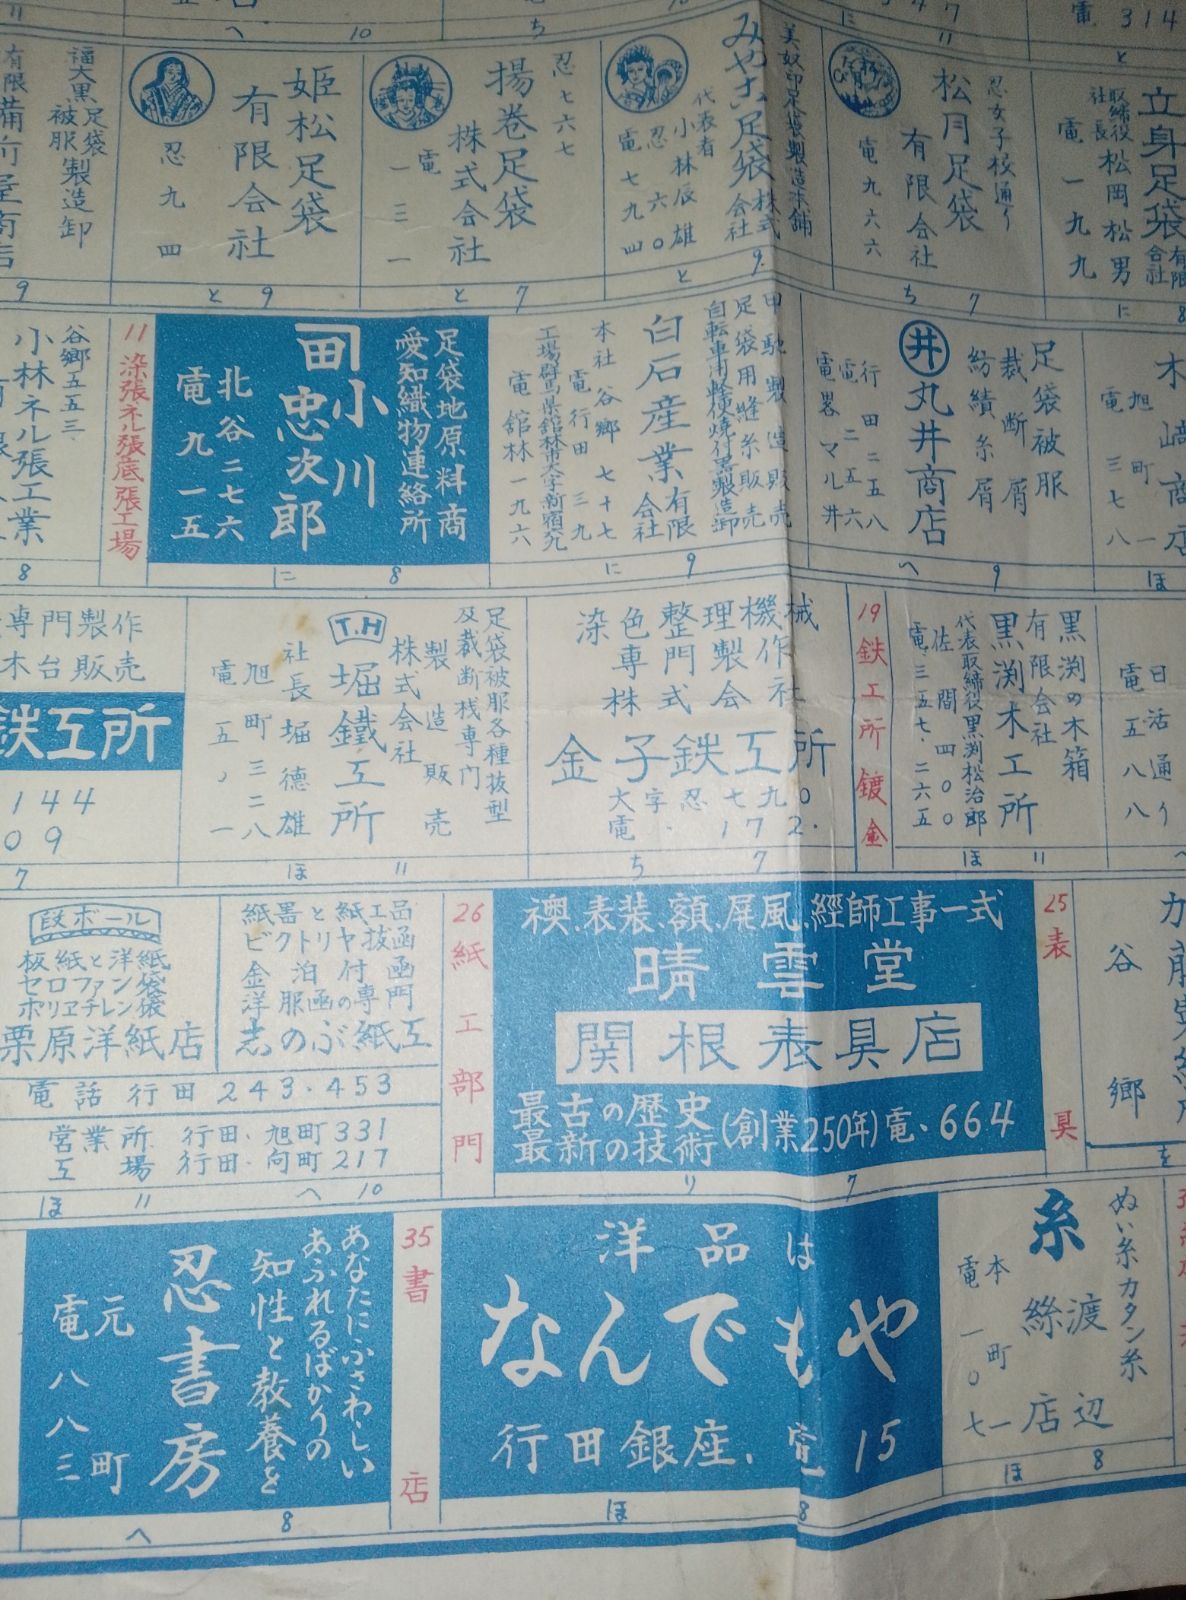 福大黒足袋
被服製造卸
姫松足袋
有限会社
忍九四
と 9
忍七六七
揚巻足袋
株式会社
電一三一
と 7
美奴印足袋製造本舗
足袋株式会社
代表者 小林辰雄
忍六〇
電七九四
と 9
忍女子校通り
松月足袋
有限会社
電九六六
ち 7
立身足袋
有限会社
取締役社長 松岡松男
電一九九
に 8
谷郷五五三
小林ネル張工業
8
11 染張ネル張底張工場
足袋地原料商
愛知織物連絡所
小川忠次郎
北谷二七六
電九一五
に 8
甲馳製造販売
足袋用縫糸販売
白石産業有限会社
本社 谷郷七十七
電行田七三九
電館林一九六
に 9
足袋被服
裁断屑
紡績糸屑
井 丸井商店
行田二五八
電二五六
電畧マルヰ
へ 9
木崎商店
旭町一
電三七八
ほ
専門製作
木台販売
鉄工所
144
09
7
足袋被服各種抜型
及裁断機専門
製造販売
T.H
株式会社
堀鐵工所
社長 堀德雄
旭町三二八
電五八一
ほ 〃
染色整理機械
専門製作
株式会社
金子鉄工所
大字忍七九0
電.172.
ち 7
19 鉄工所鍍金
黒渕の木箱
有限会社
黒渕木工所
代表取締役黒渕松治郎
佐間四〇〇
電.三五七.二六五
ほ 〃
日活通り
電五八八
段ボール
板紙と洋紙
セロファン袋
ポリエチレン袋
栗原洋紙店
紙器と紙工品
ビクトリヤ抜函
金泊付函
洋服函の専門
志のぶ紙工
電話 行田 243.453
営業所 行田.旭町331
工場 行田.向町217
ほ 〃 へ 10
26 紙工部門
襖.表装.額.屏風.經師工事一式
晴雲堂
関根表具店
最古の歴史
最新の技術
(創業250年)電.664
り 7
25 表具
谷郷
を
あなたにふさわしい
あふれるばかりの
知性と教養を
忍書房
元町
電八八三
へ 8
35 書店
洋品は
なんでもや
行田銀座.電15
ほ 8
ぬい糸カタン糸
糸
渡辺絲店
本町一
電一〇七
ほ 8